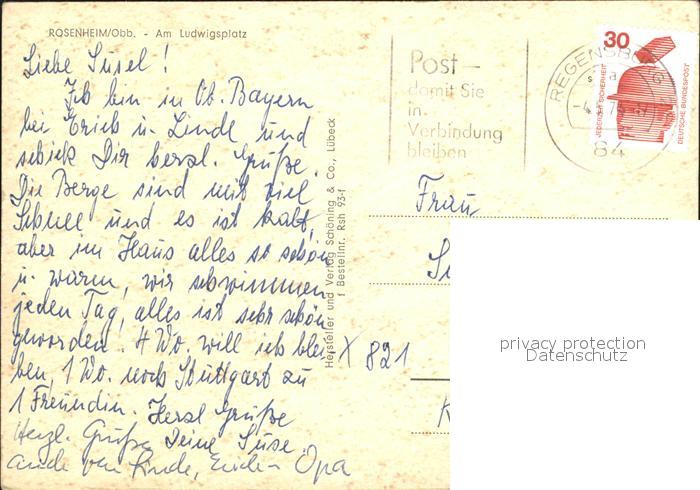 ROSENHEIM/Obb. - Am Ludwigsplatz
Liebe Susel!
Ich bin in Ob. Bayern
bei Erich u. Linde und
schick Dir herzl. Grüße.
Die Berge sind mit viel
Schnee und es ist kalt,
aber im Haus alles so schön
u. warm, wir schwimmen
jeden Tag, alles ist sehr schön
geworden. 4 Wo. will ich blei-
ben, 1 Wo. noch Stuttgart zu
1 Freundin. Herzl Grüße
Deine Suse
Herzl. Grüße
auch von Linde, Opa
Hersteller und Verlag Schöning & Co., Lübeck
f Bestellnr. Rsh 93-f
Post –
damit Sie
in
Verbindung
bleiben
REGENSBURG
84
30
JEDERZEIT SICHERHEIT
DEUTSCHE BUNDESPOST
Frau
X 821
privacy protection
Datenschutz